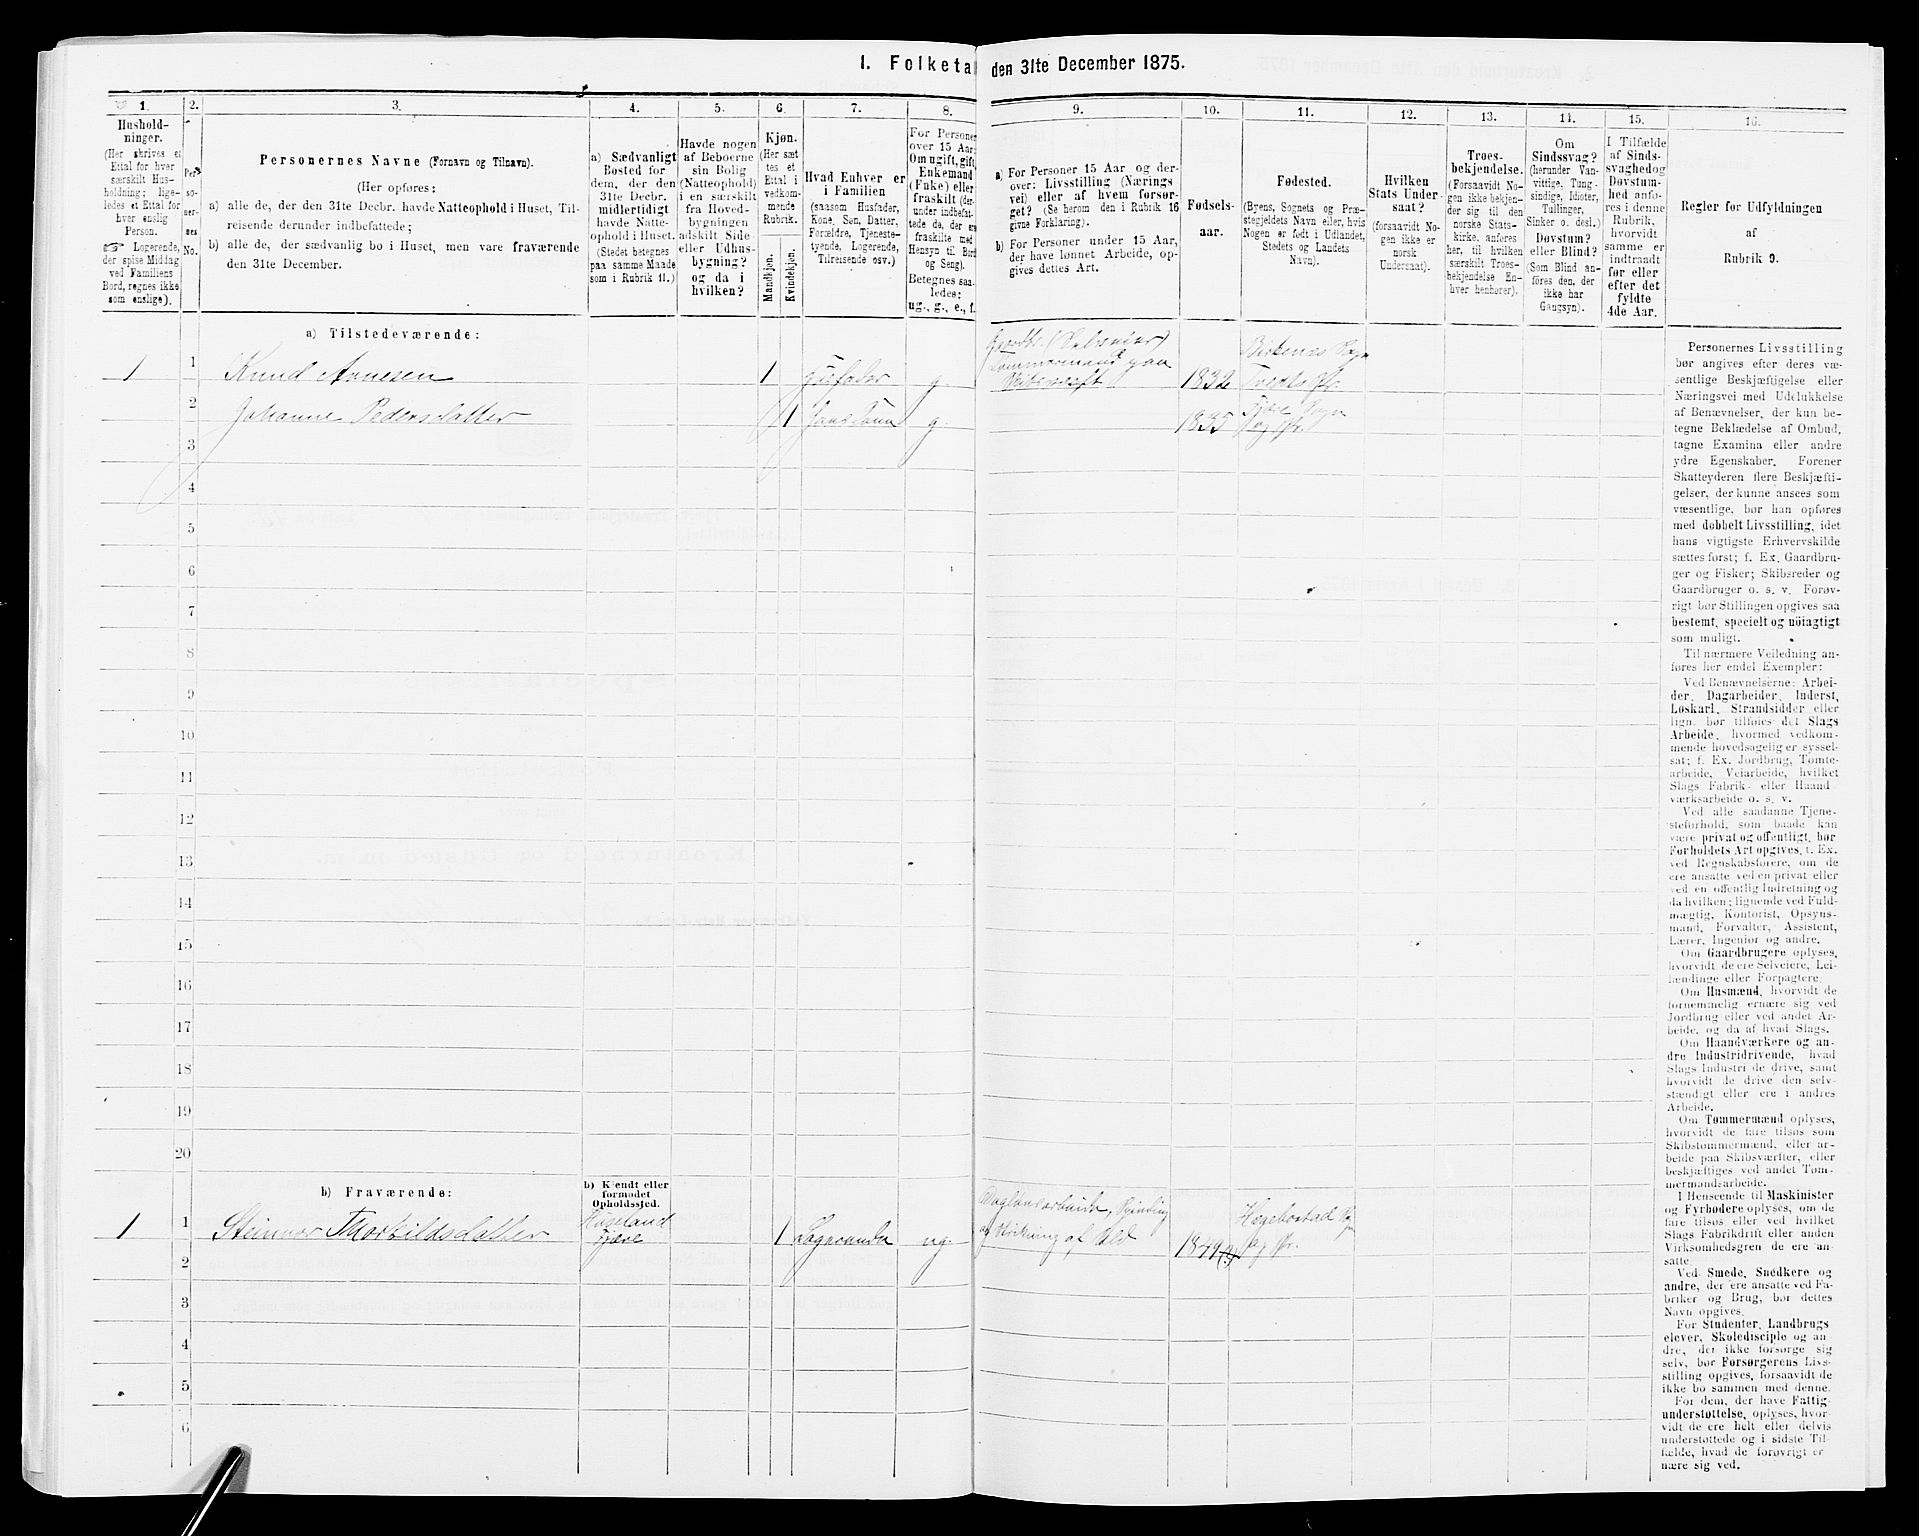 I. Folketa den 31te December 1875.
1.
Hushold-
ninger.
(Her skrives et
Ettal for hver
særskilt Hus-
holdning; lige-
ledes et Ettal for
hver enslig
Person.
Logerende,
der spise Middag
ved Familiens
Bord, regnes ikke
som enslige).
2.
Per-
so-
ner-
nes
No.
3.
Personernes Navne (Fornavn og Tilnavn).
(Her opføres:
a) alle de, der den 31te Decbr. havde Natteophold i Huset, Til-
reisende derunder indbefattede;
b) alle de, der sædvanlig bo i Huset, men vare fraværende
den 31te December.
4.
a) Sædvanligt
Bosted for
dem, der den
31te Decbr.
midlertidigt
havde Natte-
ophold i Huset.
(Stedet betegnes
paa samme Maade
som i Rubrik 11.)
5.
Havde nogen
af Beboerne
sin Bolig
(Natteophold)
i en særskilt
fra Hoved-
bygningen
adskilt Side-
eller Udhus-
bygning?
og da i
hvilken?
6.
Kjøn.
(Her sæt-
tes et
Ettal i
vedkom-
mende
Rubrik.
Mandkjøn.
Kvindekjøn.
7.
Hvad Enhver er
i Familien
(saasom Husfader,
Kone, Søn, Datter,
Forældre, Tjeneste-
tyende, Logerende,
Tilreisende osv.)
8.
For Personer
over 15 Aar:
Om ugift, gift,
Enkemand
(Enke) eller
fraskilt (der-
under indbefat-
tede de, der ere
fraskilte med
Hensyn til Bord
og Seng).
Betegnes saa-
ledes:
ug., g., e., f.
9.
a) For Personer 15 Aar og der-
over: Livsstilling (Nærings
vei) eller af hvem forsør-
get? (Se herom den i Rubrik 16
givne Forklaring).
b) For Personer under 15 Aar,
der have lønnet Arbeide, op-
gives dettes Art.
10.
Fødsels-
aar.
11.
Fødested.
(Byens, Sognets og Præ-
stegjeldets Navn eller, hvis
Nogen er født i Udlandet,
Stedets og Landets
Navn).
12.
Hvilken
Stats Under-
saat?
(forsaavidt No-
gen ikke er
norsk
Undersaat).
13.
Troes-
bekjendelse.
(Forsaavidt No-
gen ikke bekjen-
der sig til den
norske Stats-
kirke, anføres
her, til hvilken
særskilt Troes-
bekjendelse En-
hver henhører).
14.
Om
Sindssvag?
(herunder Van-
vittige, Tung-
sindige, Idioter,
Tullinger,
Sinker o. desl.)
Døvstum?
eller Blind?
(Som Blind an-
føres den, der
ikke har
Gangsyn).
15.
I Tilfælde
af Sinds-
svaghed og
Døvstum-
hed anfø-
res i denne
Rubrik,
hvorvidt
samme er
indtraadt
før eller
efter det
fyldte
4de Aar.
16.
Regler før Udfyldningen
af
Rubrik 9.
a) Tilstedeværende:
Gaardbr. (Selveier)
Tømmermand paa
Skibsværft
Birkenæs Sogn
1 1 Knud Aanesen 1 Husfader g. 1832 Tvedts Pr.
2 Johanne Pedersdatter 1 hans Kone g. 1835 Fjære Sogn
og Pr.
3
4
5
6
7
8
9
10
11
12
13
14
15
16
17
18
19
20
b) Fraværende:
b) Kjendt eller
formodet
Opholdssted.
1 1 Steinvor Thorkildsdatter Huseland
Fjære 1 Logerende ug. Daglønsarbeide, Spinding
og Strikning af Uld 1849(?) Hægebostad Sogn
og Pr.
2
3
4
5
6
Personernes Livsstilling
bør angives efter deres væ-
sentlige Beskjæftigelse eller
Næringsvei med Udelukkelse
af Benævnelser, der kun be-
tegne Beklædelse af Ombud,
tagne Examina eller andre
ydre Egenskaber. Forener
Skatteyderen flere Beskjæfti-
gelser, der kunne ansees som
væsentlige, bør han opføres
med dobbelt Livsstilling, idet
hans vigtigste Erhvervskilde
sættes først; f. Ex. Gaardbru-
ger og Fisker; Skibsreder og
Gaardbruger o. s. v. Forøv-
rigt bør Stillingen opgives saa
bestemt, specielt og nöiagtigt
som muligt.
Til nærmere Veiledning an-
føres her endel Exempler:
Ved Benævnelserne: Arbei-
der, Dagarbeider, Inderst,
Løskarl, Strandsidder eller
lign. bør tilføies det Slags
Arbeide, hvormed vedkom-
mende hovedsagelig er syssel-
sat; f. Ex. Jordbrug, Tomte-
arbeide, Veiarbeide, hvilket
Slags Fabrik- eller Haand-
værksarbeide o. s. v.
Ved alle saadanne Tjene-
steforhold, som baade kan
være privat og offentligt, bør
Forholdets Art opgives, f. Ex.
ved Regnskabsførere, om de
ere ansatte ved en privat eller
ved en offentlig Indretning og
da hvilken; lignende ved Fuld-
mægtig, Kontorist, Opsyns-
mand, Forvalter, Assistent,
Lærer, Ingeniør og andre.
Om Gaardbrugere oplyses,
hvorvidt de ere Selveiere, Lei-
lændinge eller Forpagtere.
Om Husmænd, hvorvidt de
fornemmelig ernære sig ved
Jordbrug eller ved andet Ar-
beide, og da af hvad Slags.
Om Haandværkere og an-
dre Industridrivende, hvad
Slags Industri de drive, samt
hvorvidt de drive den selv-
stændigt eller ere i andres
Arbeide.
Om Tømmermænd oplyses,
hvorvidt de fare tilsøs som
Skibstømmermænd, eller ar-
beide paa Skibsværfter, eller
beskjæftiges ved andet Tøm-
mermandsarbeide.
I Henseende til Maskinister
og Fyrbødere oplyses, om de
fare tilsøs eller ved hvilket
Slags Fabrikdrift eller anden
Virksomhedsgren de ere an-
satte.
Ved Smede, Snedkere og
andre, der ere ansatte ved Fa-
briker og Brug, bør dettes
Navn opgives.
For Studenter, Landbrugs-
elever, Skoledisciple og an-
dre, der ikke forsørge sig
selv, bør Forsørgerens Livs-
stilling opgives, forsaavidt de
ikke bo sammen med denne.
For dem, der have Fattig-
understøttelse, oplyses, hvor-
vidt de ere helt eller delvis
understøttede og i sidste Til-
fælde, hvad de forøvrigt er-
nære sig ved.